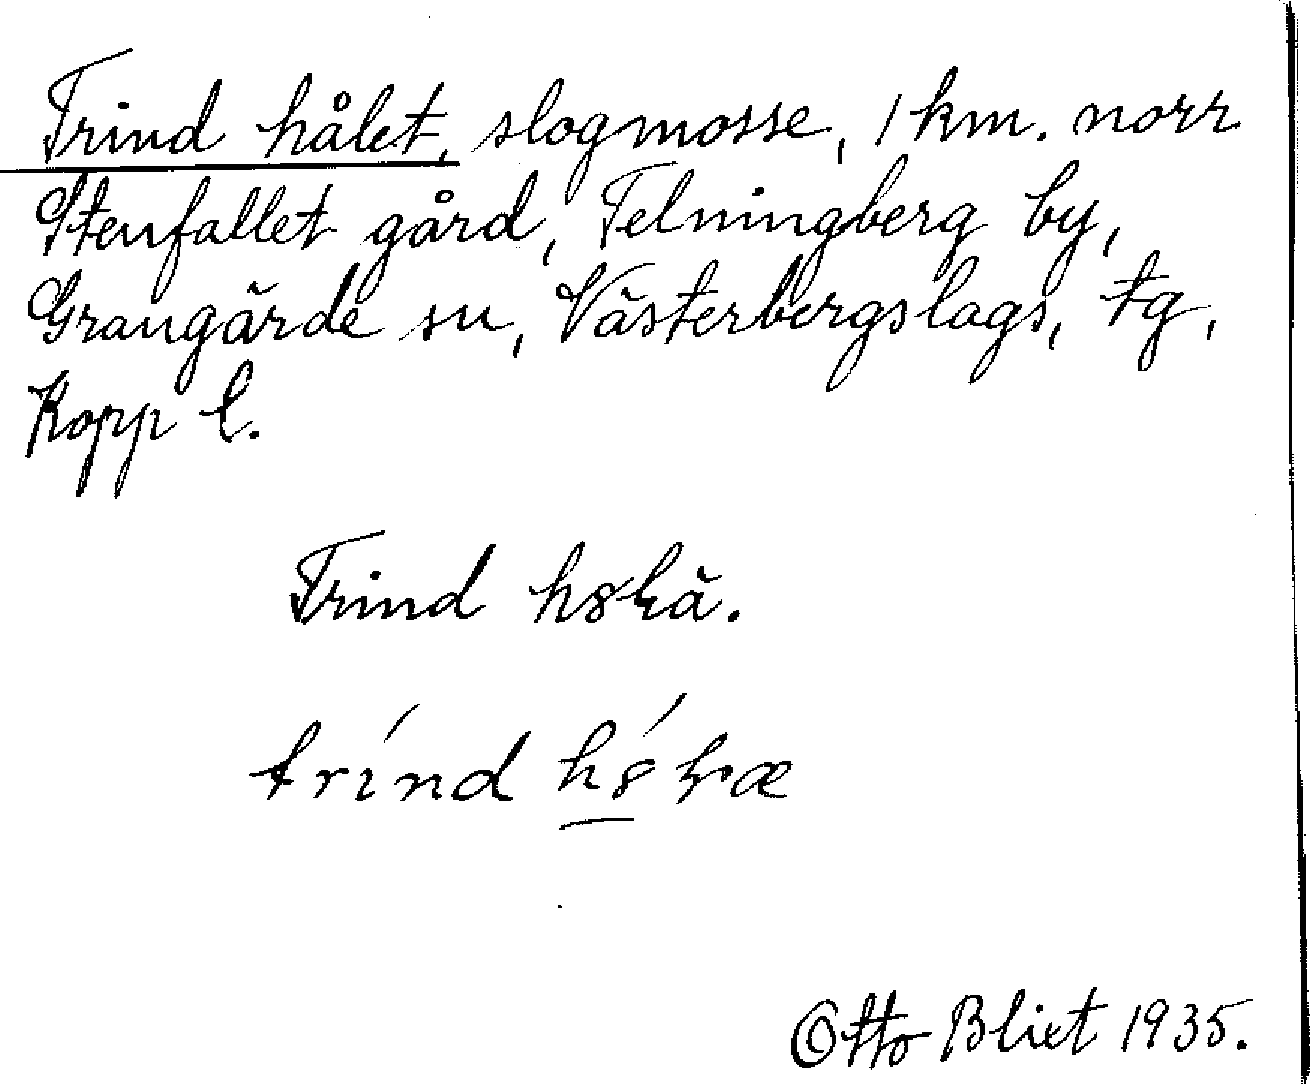 Trind hålet, slogmosse, 1 km. norr
Stenfallet gård, Felningberg by,
Grangärde sn, Västerbergslags, tg,
Kopp l.
Trind
trínd
Otto Blixt 1935.